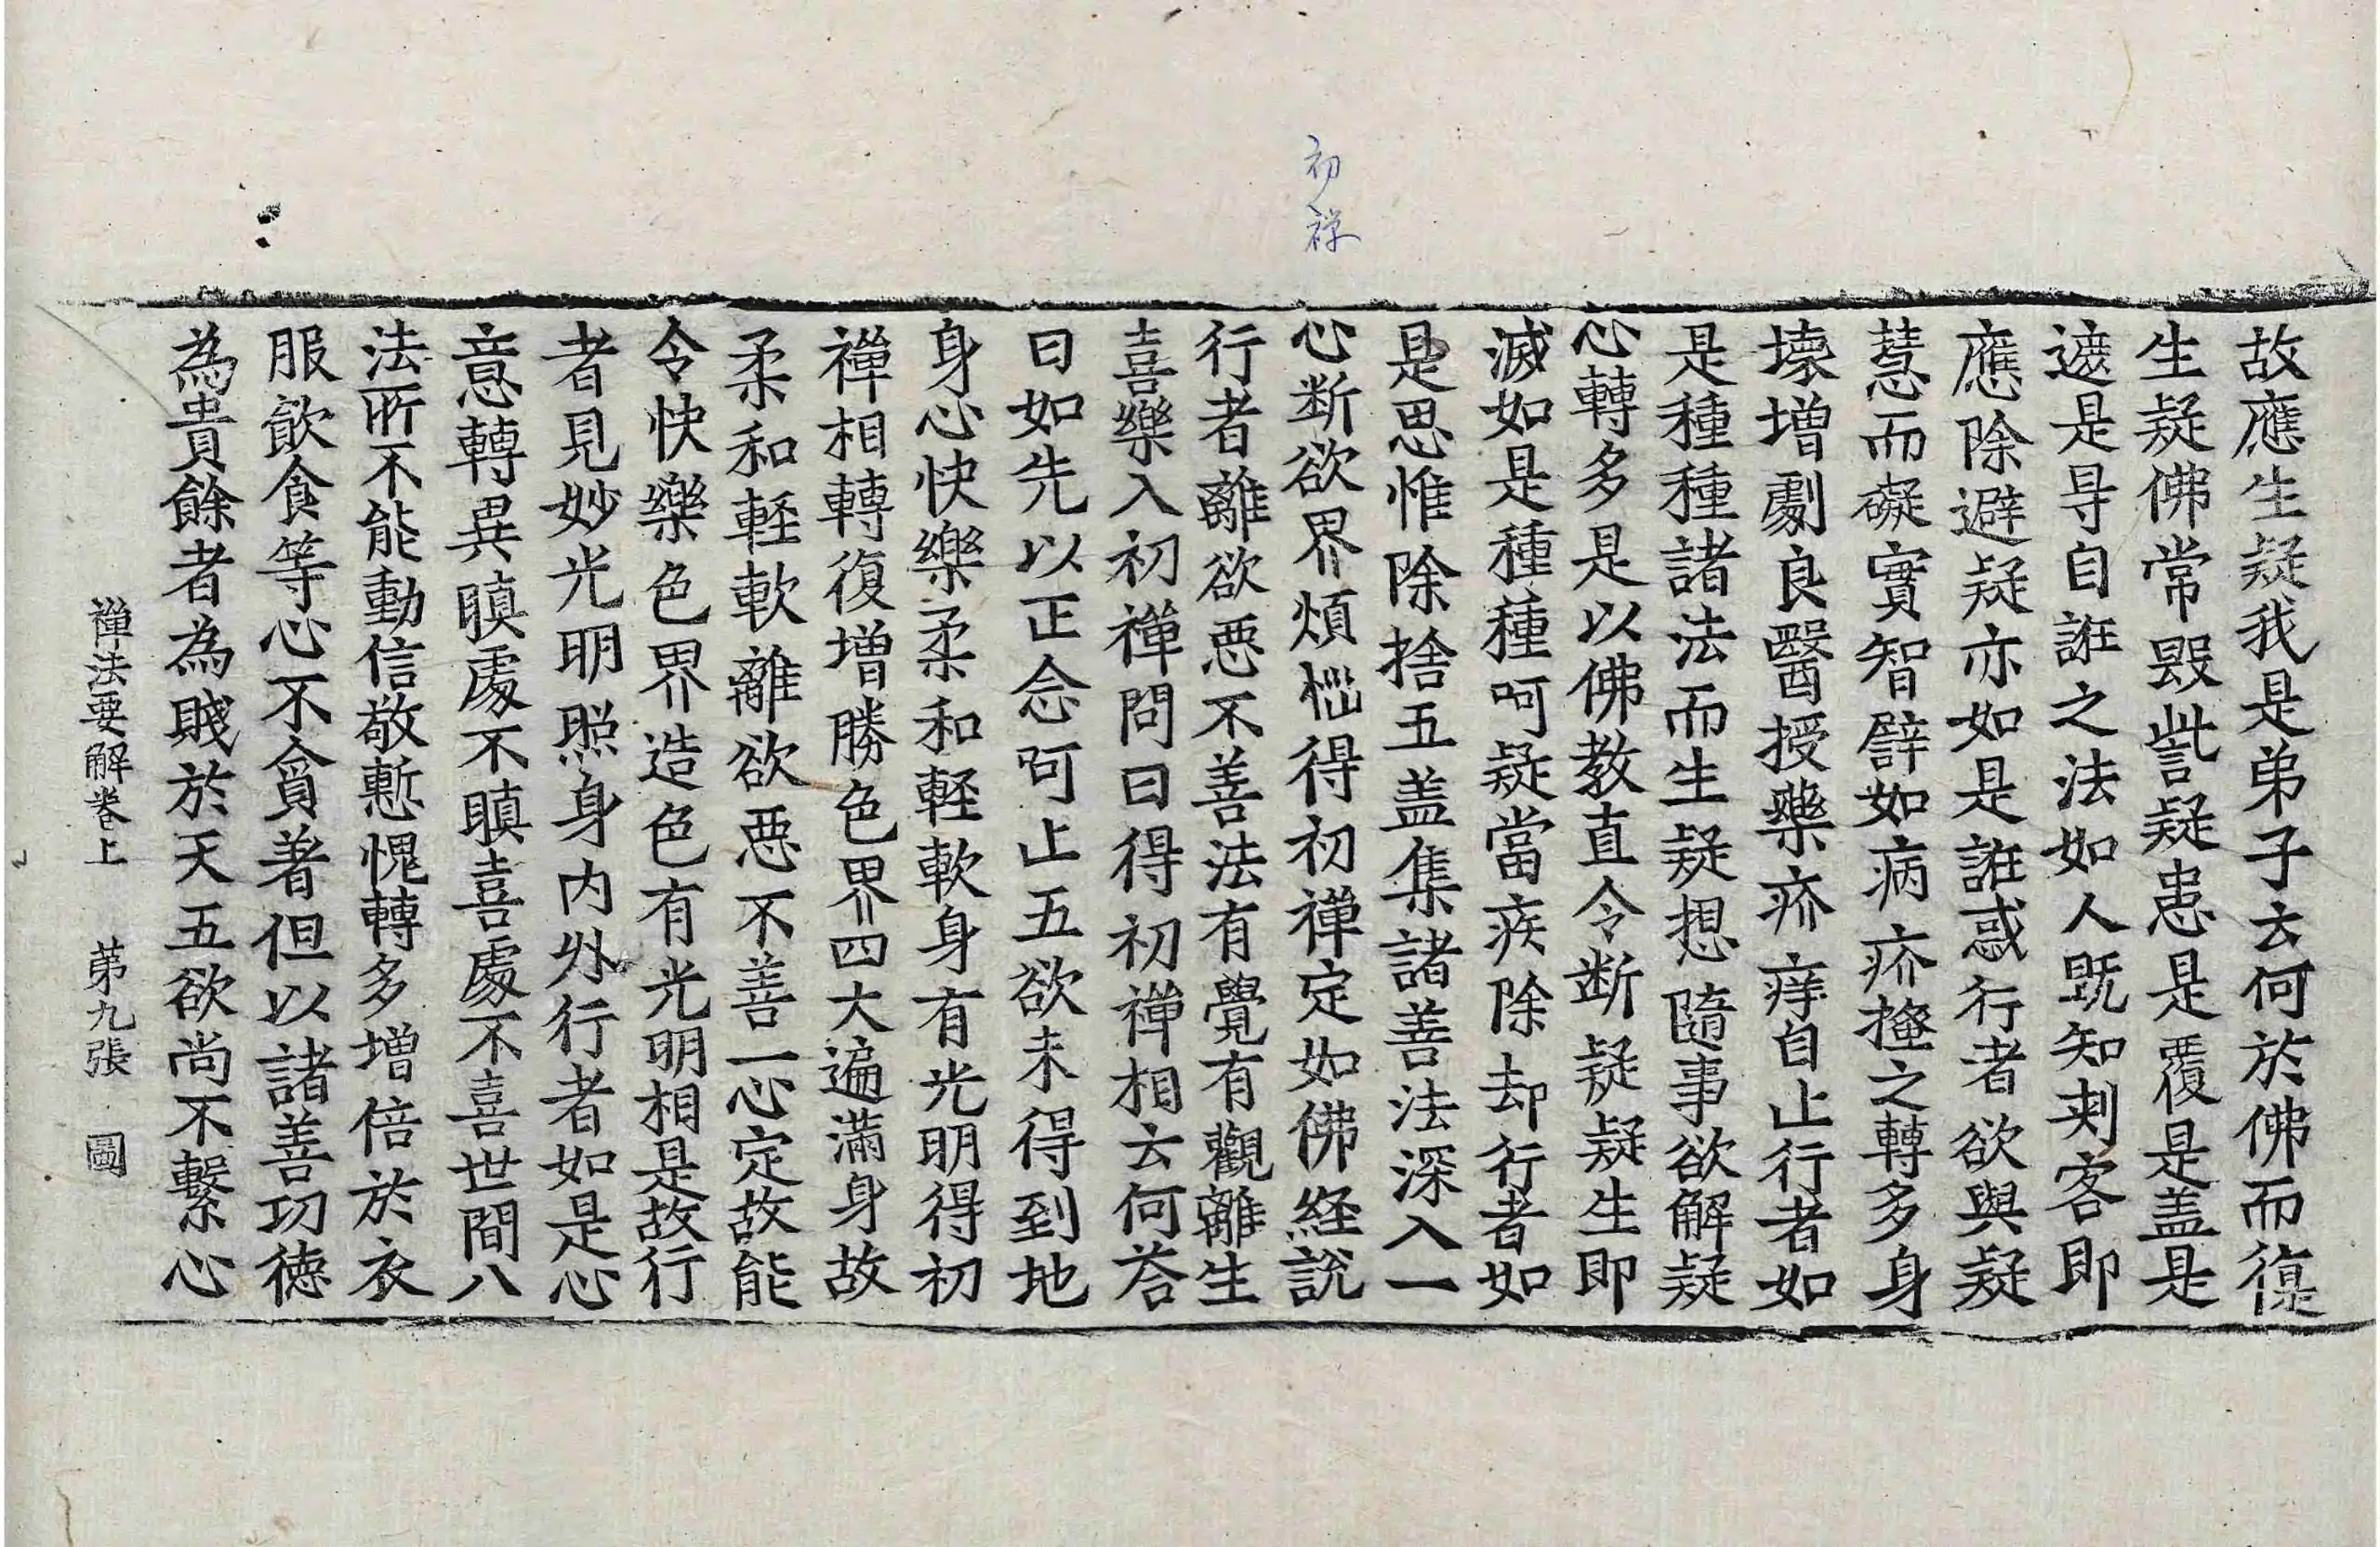 初禅
故應生疑我是弟子云何於佛而復
生疑佛常毀呰疑患是覆是盖是
遮是㝵自誑之法如人既知刾客即
應除避疑亦如是誑惑行者欲與疑
慧而礙實智譬如病疥搔之轉多身
壞增劇良醫授藥疥痒自止行者如
是種種諸法而生疑想隨事欲解疑
心轉多是以佛教直令断疑疑生即
滅如是種種呵疑當疾除却行者如
是思惟除捨五盖集諸善法深入一
心断欲界煩惱得初禪定如佛経說
行者離欲惡不善法有覺有觀離生
喜樂入初禪問曰得初禪相云何荅
曰如先以正念呵止五欲未得到地
身心快樂柔和軽軟身有光明得初
禪相轉復增勝色界四大遍滿身故
柔和軽軟離欲惡不善一心定故能
令快樂色界造色有光明相是故行
者見妙光明照身内外行者如是心
意轉異瞋處不瞋喜處不喜世間八
法所不能動信敬慙愧轉多增倍於衣
服飲食等心不貪著但以諸善功徳
為貴餘者為賤於天五欲尚不繫心
禪法要解卷上 苐九張 圖